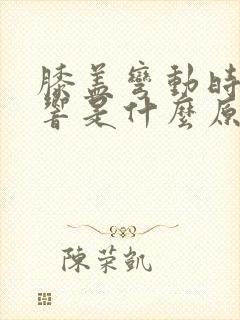 膝盖彎動時
響是什麼原
陳荣凱